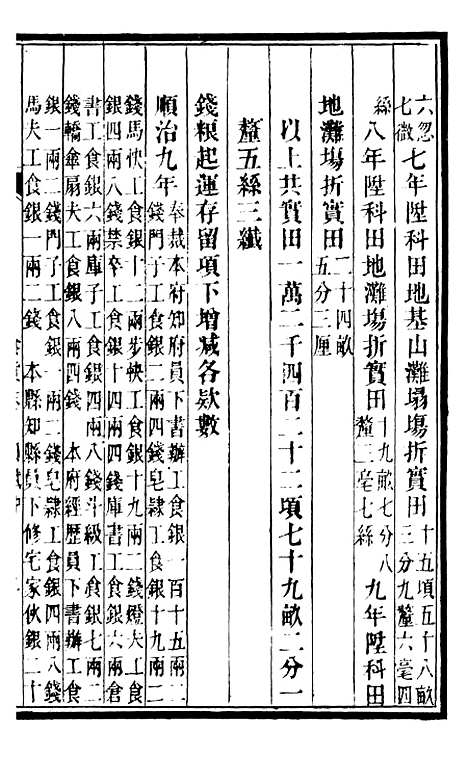 六忽
七微
七年陞科田地基山灘塌塲折實田
十五頃五十八畝
三分九釐六毫四
絲
八年陞科田地灘塲折實田
十九畝七分八
釐二毫七絲
九年陞科田
地灘塲折實田
二十四畝
五分三厘
以上共實田一萬二千四百二十二頃七十九畝二分一
釐五絲三纖
錢粮起運存留項下增减各欵數
順治九年
奉裁本府知府員下書辦工食銀一百十五兩二
錢門子工食銀二兩四錢皂隷工食銀十九兩二
錢馬快工食銀十二兩步快工食銀十九兩二錢燈夫工食
銀四兩八錢禁卒工食銀十四兩四錢庫書工食銀六兩倉
書工食銀六兩庫子工食銀四兩八錢斗級工食銀七兩二
錢轎傘扇夫工食銀八兩四錢 本府經歷員下書辦工食
銀一兩二錢門子工食銀一兩二錢皂隷工食銀四兩八錢
馬夫工食銀一兩二錢 本縣知縣員下修宅家伙銀二十